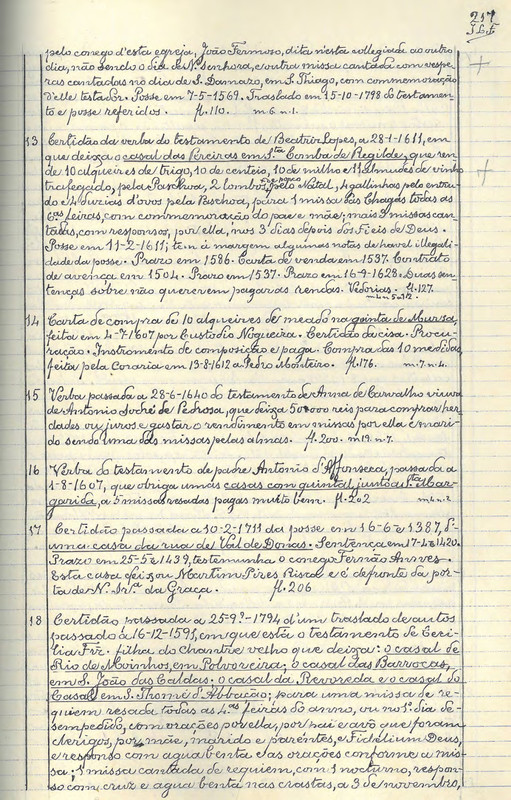 217
pelo conego d'esta egreja, João Fermoso, dita n'esta collegiada ao outro
dia, não sendo o dia de N. Senhora, e outra missa cantada com vespe-
ras cantadas no dia de S. Damazo, em S. Thiago, com commemoração
d'elle testador. Posse em 7-5-1569. Traslado em 15-10-1798 do testamen-
to e posse referidos. fl. 110. m 6. n. 1.
13 Certidão da verba do testamento de Beatriz Lopes, a 28-1-1611, em
que deixa o casal das Pereiras em S.ta Comba de Regilde, que ren-
de 10 alqueires de trigo, 10 de centeio, 10 de milho e 11 almudes de vinho
trafegado, pela Paschoa, 2 lombos de porco pelo Natal, 4 gallinhas pelo entru-
do e 4 duzias d'ovos pela Paschoa, para 1 missa ás Chagas todas as
6.as feiras, com commemoração do pae e mãe; mais 3 missas can-
tadas, com responsor, por ella, nos 3 dias depois dos Fieis de Deus.
Posse em 11-2-1611; tem á margem algumas notas de haver illegali-
dade da posse. Prazo em 1586. Carta de venda em 1537. Contrato
de avença em 1504. Prazo em 1537. Prazo em 16-9-1628. Duas sen-
tenças sobre não quererem pagar as rendas. Vedorias. fl. 127.
14 Carta de compra de 10 alqueires de meado na quinta de Murza,
feita em 4-7-1607 por Custodio Nogueira. Certidão da cisa. Procu-
ração. Instrumento de composição e paga. Compra das 10 medidas,
feita pela Coraria em 13-8-1612 a Pedro Monteiro. fl. 176. m. 7. n. 4.
15 Verba passada a 28-6-1640 do testamento de Anna de Carvalho viuva
de Antonio Sodré de Pedrosa, que deixa 50$000 reis para comprar her-
dades ou juros e gastar o rendimento em missas por ella e mari-
do sendo uma das missas pelas almas. fl. 200. m 19. n. 7.
16 Verba do testamento de padre Antonio d'Affonseca, passada a
1-8-1607, que obriga umas casas com quintal, junto a S.ta Mar-
garida, a 5 missas resadas pagas muito bem. fl. 202
17 Certidão passada a 10-2-1711 da posse em 16-6-1387, d'
uma casa da rua de Val de Donas. Sentença em 17-4-1420.
Prazo em 25-5-1439, testemunha o conego Fernão Annes.
Esta casa deixou Martim Pires Riscal e é defronte da por-
ta de N. Sr.a da Graça. fl. 206
18 Certidão passada a 25-9.º-1794 d'um traslado de autos
passado a 16-12-1591, em que está o testamento de Ceci-
lia Frz. filha do Chantre velho que deixa: o casal de
Rio de Moinhos, em Polvoreira; o casal das Barrocas,
em S. João das Caldas; o casal da Revoreda e o casal do
Casal, em S. Thomé d'Abbação; para uma missa de re-
quiem resada todas as 4.as feiras do anno, ou no 1.º dia de-
sempedido, com orações por ella, por pai e avó que foram
clerigos, por mãe, marido e parentes, e Fidelium Deus,
e responso com agua benta e as orações conforme a mis-
sa; 1 missa cantada de requiem, com 1 nocturno, respon-
so com cruz e agua benta nas crastas, a 3 de novembro,